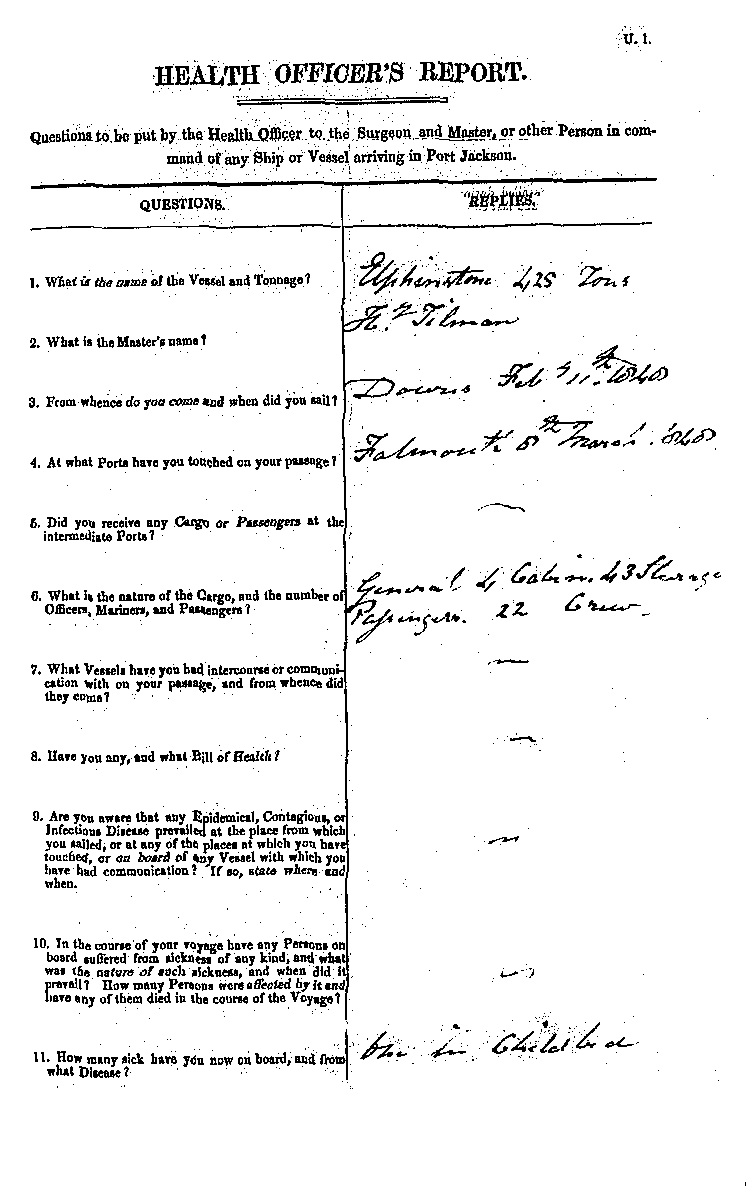 U. 1.
HEALTH OFFICER'S REPORT.
Questions to be put by the Health Officer to the Surgeon and Master, or other Person in com-
mand of any Ship or Vessel arriving in Port Jackson.
QUESTIONS.
REPLIES.
1. What is the name of the Vessel and Tonnage?
Elphinstone 425 Tons
2. What is the Master's name?
Hy Tilman
3. From whence do you come and when did you sail?
Downs Feby 11th 1848
4. At what Ports have you touched on your passage?
Falmouth 8th March 1848
5. Did you receive any Cargo or Passengers at the
intermediate Ports?
—
6. What is the nature of the Cargo, and the number of
Officers, Mariners, and Passengers?
General 4 Cabin 43 Steerage
Passengers. 22 Crew
7. What Vessels have you had intercourse or communi-
cation with on your passage, and from whence did
they come?
—
8. Have you any, and what Bill of Health?
—
9. Are you aware that any Epidemical, Contagious, or
Infectious Disease prevailed at the place from which
you sailed, or at any of the places at which you have
touched, or on board of any Vessel with which you
have had communication? If so, state where and
when.
—
10. In the course of your voyage have any Persons on
board suffered from sickness of any kind, and what
was the nature of such sickness, and when did it
prevail? How many Persons were affected by it and
have any of them died in the course of the Voyage?
—
11. How many sick have you now on board, and from
what Disease?
One in Childbed